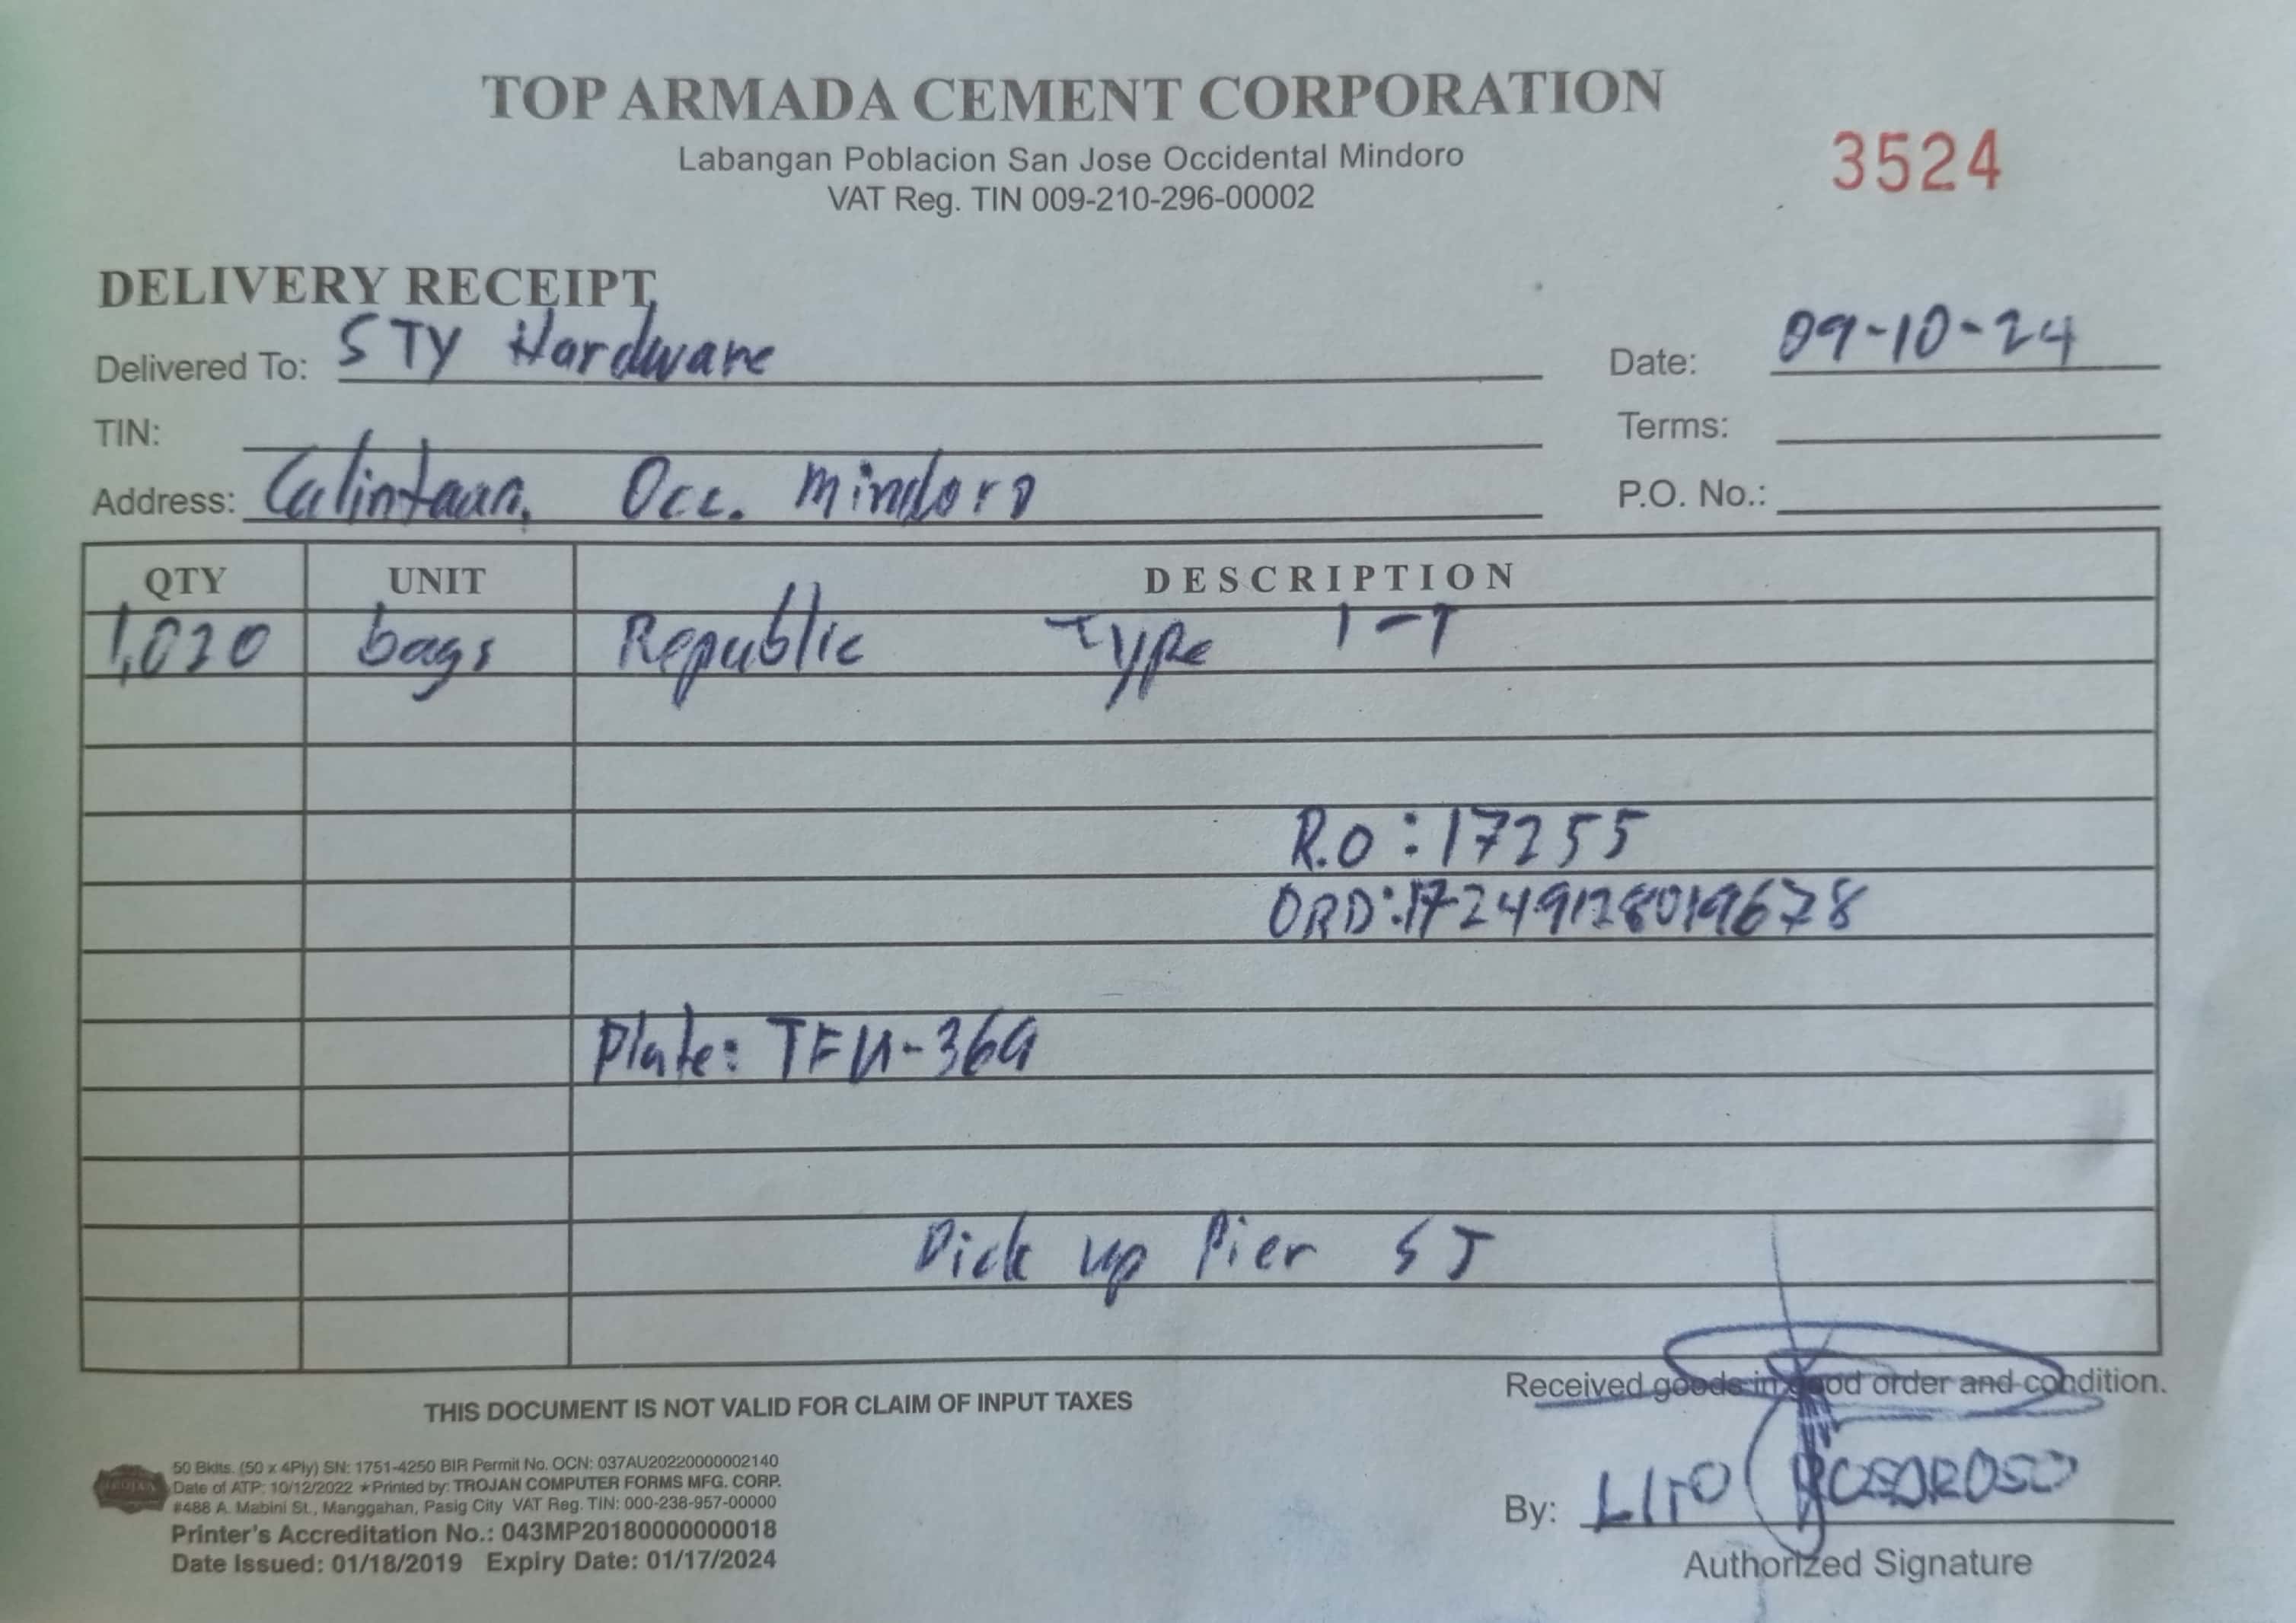 TOP ARMADA CEMENT CORPORATION
Labangan Poblacion San Jose Occidental Mindoro
VAT Reg. TIN 009-210-296-00002
3524
DELIVERY RECEIPT
Delivered To: STY Hardware
Date: 09-10-24
TIN:
Terms:
Address: Calintaan, Occ. Mindoro
P.O. No.:
QTY UNIT DESCRIPTION
1,020 bags Republic Type 1-T
R.O : 17255
ORD: 17249128019678
Plate: TFU-369
Pick up Pier SJ
Received goods in good order and condition.
THIS DOCUMENT IS NOT VALID FOR CLAIM OF INPUT TAXES
50 Bklts. (50 x 4Ply) SN: 1751-4250 BIR Permit No. OCN: 037AU20220000002140
Date of ATP: 10/12/2022 ★Printed by: TROJAN COMPUTER FORMS MFG. CORP.
#488 A. Mabini St., Manggahan, Pasig City VAT Reg. TIN: 000-238-957-00000
Printer's Accreditation No.: 043MP20180000000018
Date Issued: 01/18/2019 Expiry Date: 01/17/2024
By: LITO
Authorized Signature